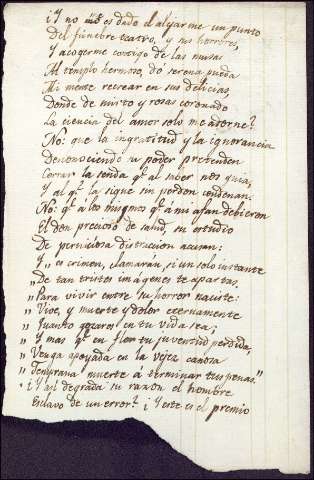 ¿Y no me es dado el alejarme un punto
Del fúnebre teatro, y sus horrores,
Y acogerme contigo de las musas
Al templo hermoso dó serena pueda
Mi mente recrear en sus delicias,
Donde de mirto y rosas coronado
La ciencia del amor solo me adorne?
No: que la ingratitud y la ignorancia
Desconociendo su poder pretenden
Cerrar la senda qᵉ al saber nos guia,
Y al qᵉ la sigue sin perdon condenan.
No: qᵉ á los mismos qᵉ á mi afan debieron
El don precioso de salud, su estudio
De perniciosa distraccion acusan:
Y „ es crimen, clamarán, si un solo instante
„ De tan tristes imágenes te apartas.
„ Para vivir entre su horror naciste:
„ Vive, y muerte y dolor eternamente
„ Quanto gozares en tu vida sea;
„ Y mas qᵉ en flor tu juventud perdida,
„ Venga apoyada en la vejez canosa
„ Temprana muerte á terminar tus penas."
¿Y asi degrada su razon el hombre
Esclavo de un error? ¿Y este es el premio